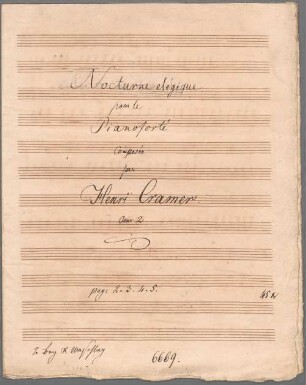 Nocturne elégique
pour le
Pianoforté
composée
par
Henri Cramer.
Oeuv. 2
pag. 2. 3. 4. 5.
45
6669.